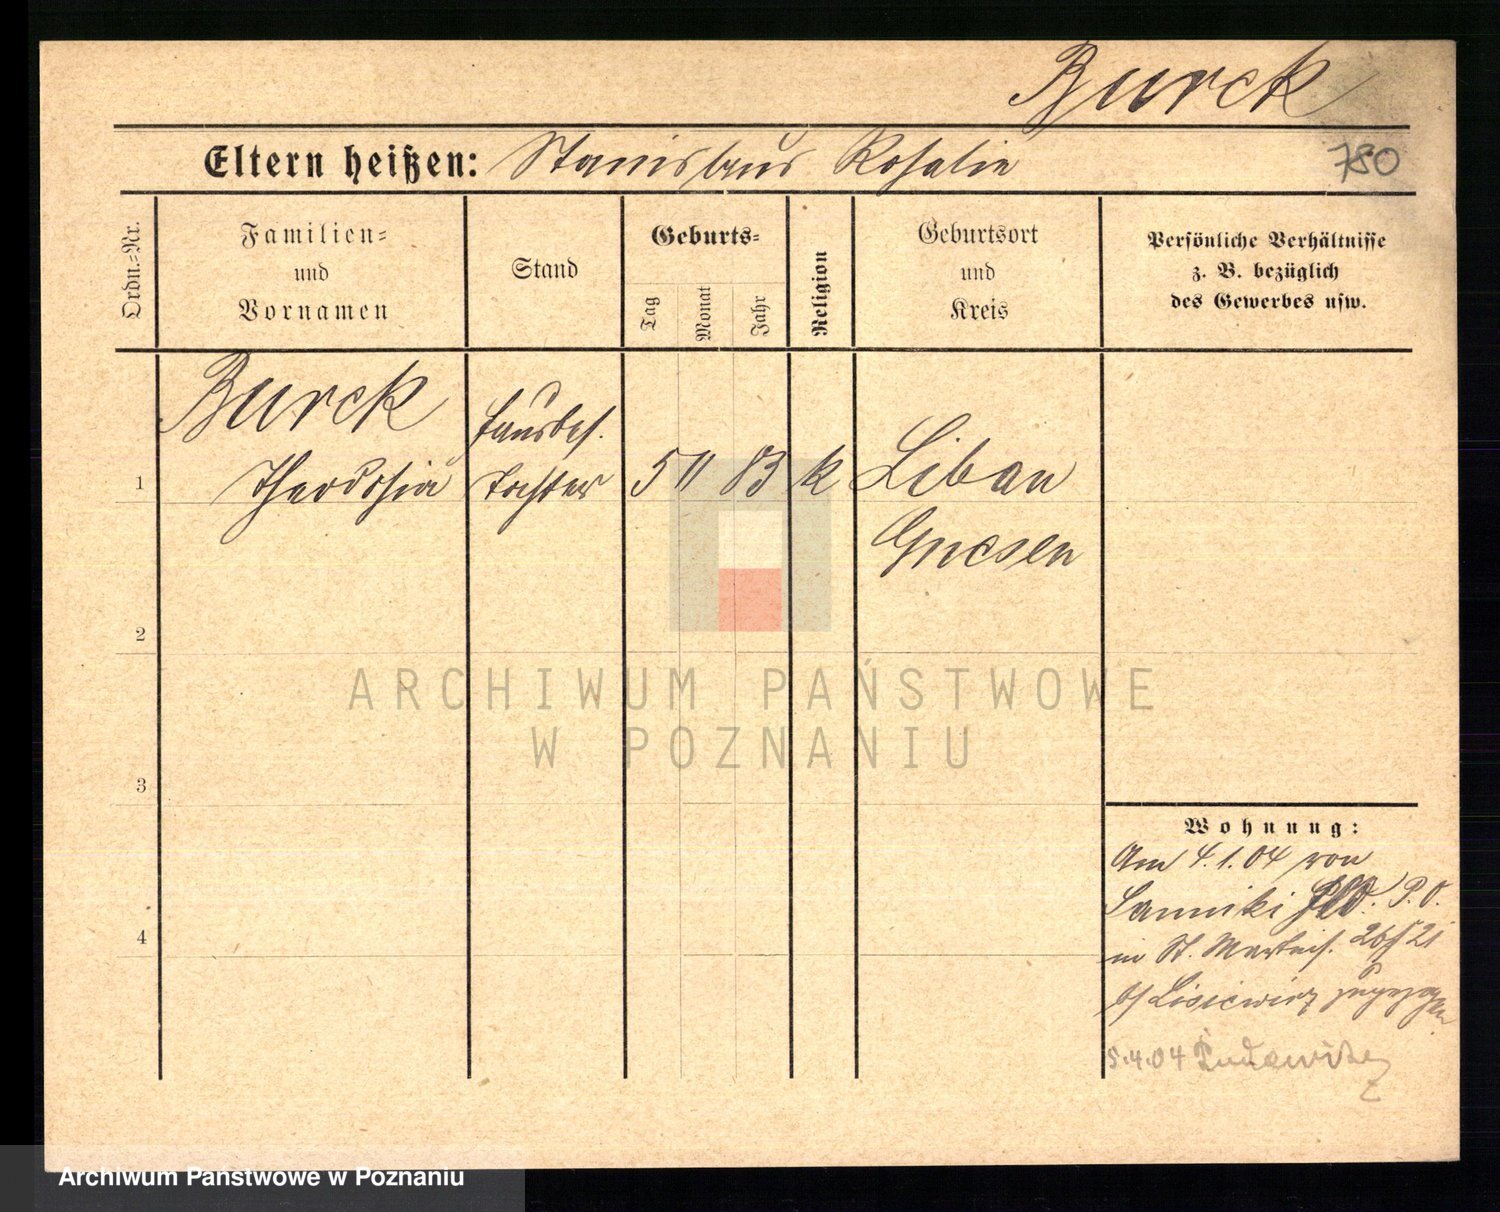 Burck
Eltern heißen: Stanislaus Rosalie
780
Ordn.-Nr.
Familien-
und
Vornamen
Stand
Geburts-
Tag
Monat
Jahr
Religion
Geburtsort
und
Kreis
Persönliche Verhältnisse
z. B. bezüglich
des Gewerbes usw.
Burck
Hausbes.
1
Theodosia
Tochter
5 11 83
k
Liban
Gnesen
2
3
4
ARCHIWUM PAŃSTWOWE
W POZNANIU
Wohnung:
Am 4.1.04 von
Sanniki P. O.
in St. Martinst. 26/ 21
b/ zugezogen.
5.4.04
Archiwum Państwowe w Poznaniu